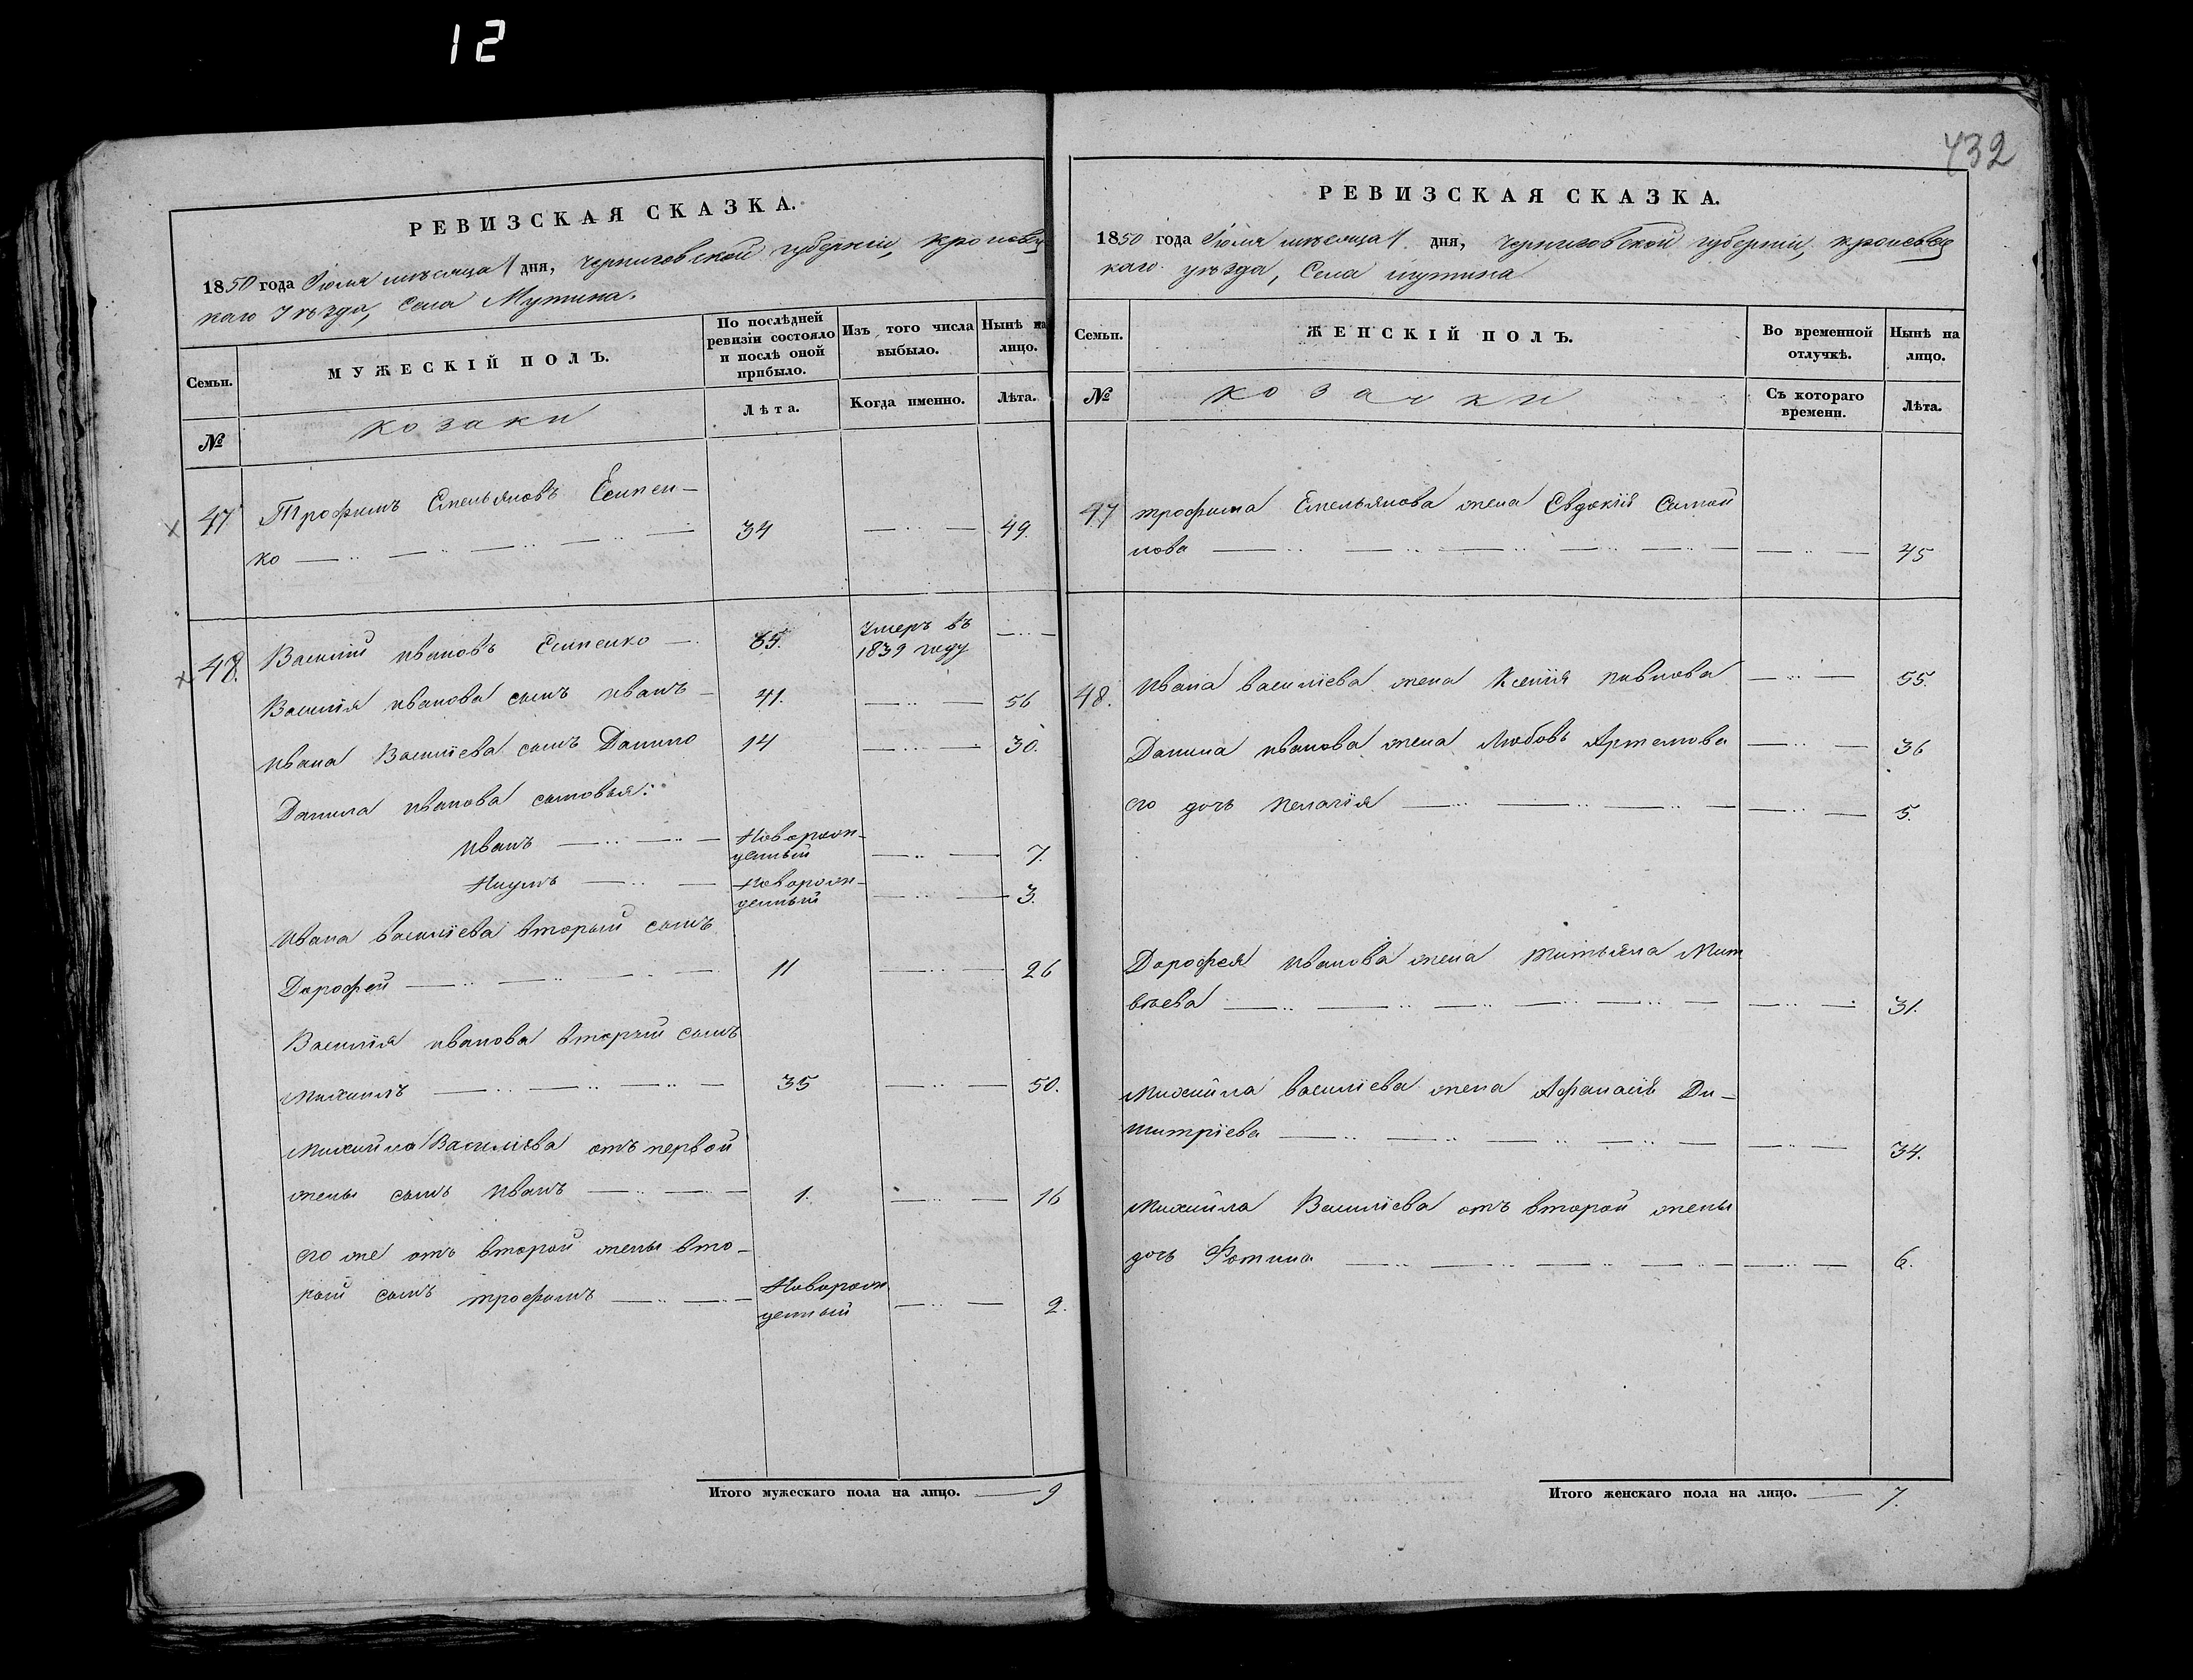 12
432
РЕВИЗСКАЯ СКАЗКА.
1850 года Іюля мѣсяца 1 дня, Черниговской губерніи, Кролевец
каго Уѣзда, Села Мутина.
Семьи.
МУЖЕСКІЙ ПОЛЪ.
По послѣдней ревизіи состояло и послѣ оной прибыло.
Изъ того числа выбыло.
Нынѣ на лицо.
№
козаки
Лѣта.
Когда именно.
Лѣта.
47 Трофимъ Емельяновъ Есипен-
ко 34 49.
48. Василій Ивановъ Есипенко 65. Умеръ въ 1839 году
Василія Иванова сынъ Иванъ 41. 56
Ивана Василіева сынъ Данило 14 30.
Данила Иванова сыновья:
Иванъ Новорож-
денный 7.
Наумъ Новорож-
денный 3.
Ивана Василіева вторый сынъ
Дорофей 11 26
Василія Иванова вторый сынъ
Михаилъ 35 50.
Михайла Василіева отъ первой
жены сынъ Иванъ 1. 16
его же отъ второй жены вто-
рый сынъ Трофимъ Новорож
денный 2.
Итого мужескаго пола на лицо. 9
РЕВИЗСКАЯ СКАЗКА.
1850 года Іюля мѣсяца 1 дня, Черниговской губерніи, Кролевец
каго уѣзда, Села Мутина
Семьи.
ЖЕНСКІЙ ПОЛЪ.
Во временной отлучкѣ.
Нынѣ на лицо.
№
козачки
Съ котораго времени.
Лѣта.
47 Трофима Емельянова жена Евдокія Самой
лова 45
48. Ивана Василіева жена Ксенія Павлова 55.
Данила Иванова жена Любовь Артемова 36
его дочь Пелагія 5.
Дорофея Иванова жена Татьяна Мат
вѣева 31.
Михайла Василіева жена Афанасія Ди-
митріева 34.
Михайла Василіева отъ второй жены
дочь Фотина 6.
Итого женскаго пола на лицо. 7.